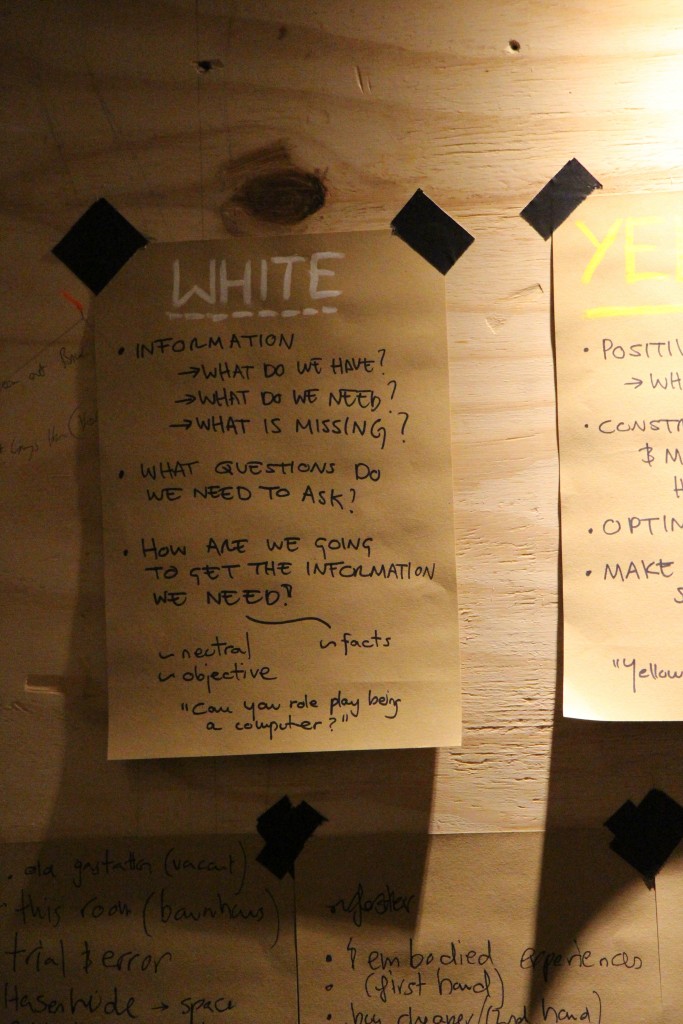 WHITE
• INFORMATION
→ WHAT DO WE HAVE?
→ WHAT DO WE NEED?
→ WHAT IS MISSING?
• WHAT QUESTIONS DO
WE NEED TO ASK?
• HOW ARE WE GOING
TO GET THE INFORMATION
WE NEED?
~ neutral
~ facts
~ objective
"Can you role play being
a computer?"
YE
• POSITIV
→ WH
• CONSTR
& M
H
• OPTIM
• MAKE
S
"Yellow
(vacant)
this room (baumhaus)
trial & error
Hasenheide → space
• embodied experiences
(first hand)
• buy cheaper/(2nd hand)